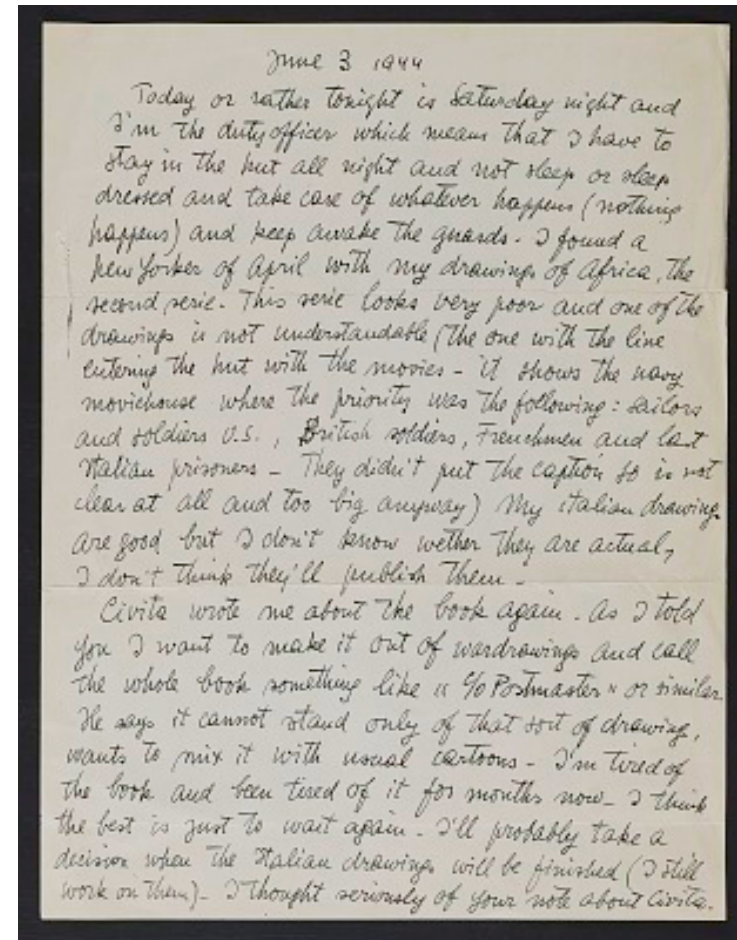 June 3 1944
Today or rather tonight is Saturday night and
I'm the duty officer which means that I have to
stay in the hut all night and not sleep or sleep
dressed and take care of whatever happens (nothing
happens) and keep awake the guards. I found a
New Yorker of April with my drawings of Africa, the
second serie. This serie looks very poor and one of the
drawings is not understandable (the one with the line
entering the hut with the movies - it shows the navy
moviehouse where the priority was the following: sailors
and soldiers U.S., British soldiers, Frenchmen and last
Italian prisoners - They didn't put the caption so is not
clear at all and too big anyway) My italian drawings
are good but I don't know wether they are actual,
I don't think they'll publish them -
Civita wrote me about the book again. As I told
you I want to make it out of wardrawings and call
the whole book something like "c/o Postmaster" or similar.
He says it cannot stand only of that sort of drawing,
wants to mix it with usual cartoons - I'm tired of
the book and been tired of it for months now - I think
the best is just to wait again - I'll probably take a
decision when the Italian drawings will be finished (I still
work on them) - I thought seriously of your note about Civita.